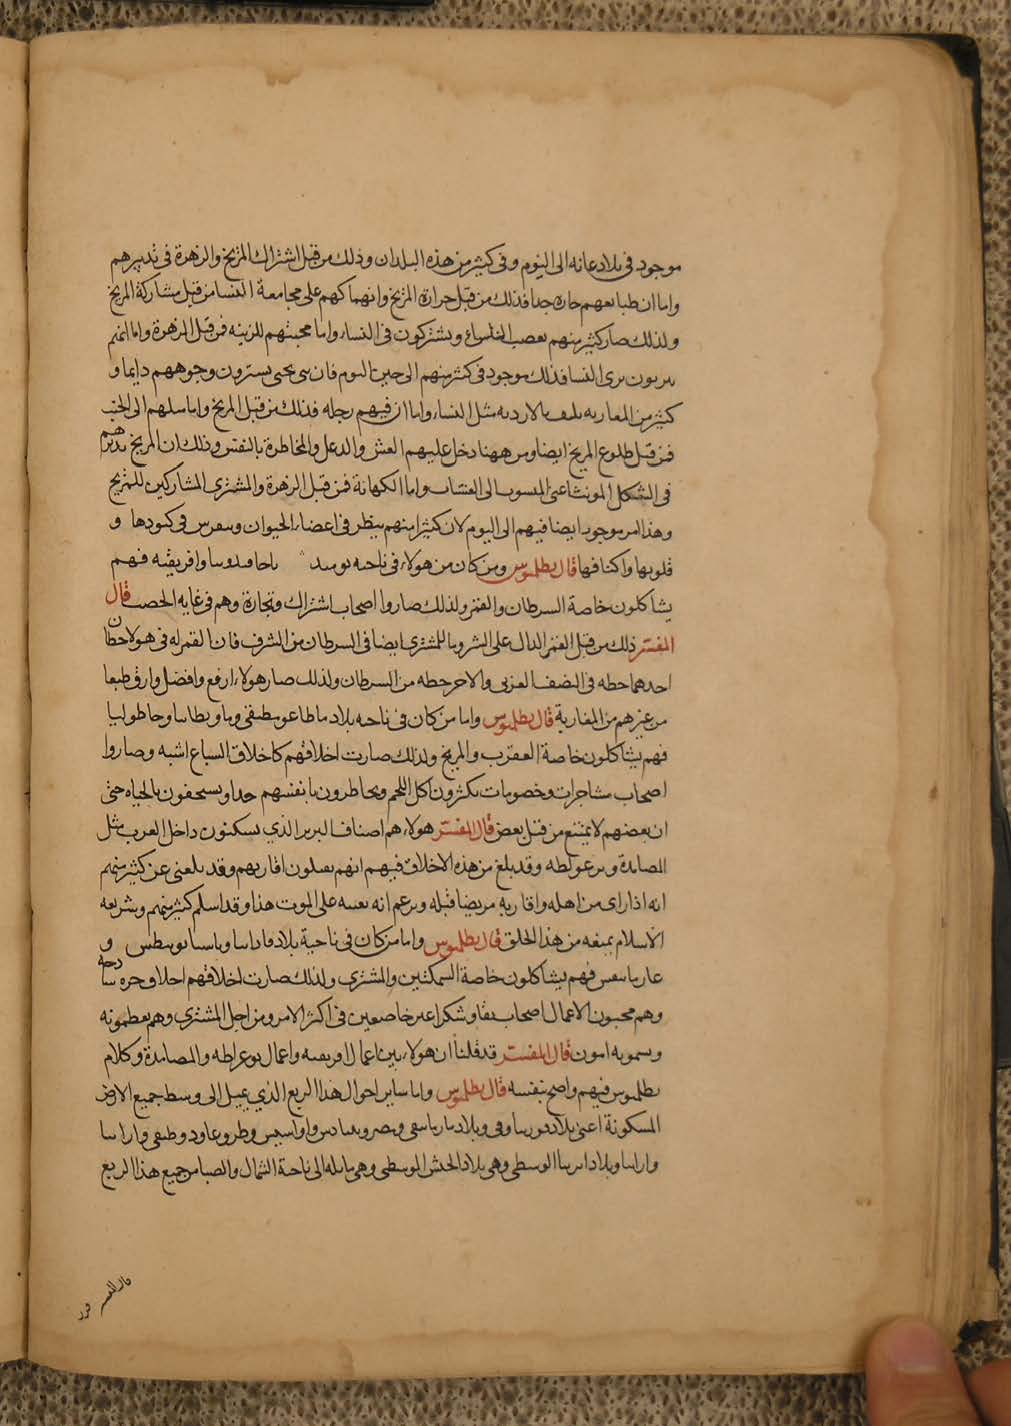 موجود فى بلاد عانه الى اليوم وفى كثير من هذه البلدان وذلك من قبل اشتراك المريخ والزهرة فى تدبيرهم
واما ان طبايعهم حارة جدا فذلك من قبل حرارة المريخ وانهماكهم على مجامعة النسا من قبل مشاركة المريخ
ولذلك صار كثير منهم بعصب النسا ويشتركون فى النساء واما محبتهم للزينه فمن قبل الزهرة واما انهم
يتزيون بزى النسا فذلك موجود فى كثير منهم الى حين اليوم فان بنى يحيى يسترون وجوههم دايما و
كثير من المغاربه يلتف بالارديه مثل النساء واما ان فيهم رجله فذلك من قبل المريخ واما ميلهم الى الخبث
فمن قبل طلوع المريخ ايضا ومن ههنا دخل عليهم الغش والدغل والمخاطرة بالنفس وذلك ان المريخ يدبرهم
فى الشكل المونث اعنى المنسوب الى العشيات واما الكهانة فمن قبل الزهرة والمشترى المشاركين للمريخ
وهذا امر موجود ايضا فيهم الى اليوم لان كثيرا منهم ينظر فى اعضاء الحيوان ويتفرس فى كبودها و
قلوبها واكتافها قال بطلميوس ومن كان من هولاء فى ناحيه نوميديا وافريقيه فهم
يشاكلون خاصة السرطان والقمر ولذلك صاروا اصحاب اشتراك وتجارة وهم فى غايه الخصب قال
المفسر ذلك من قبل القمر الدال على الشر وبا للمشترى ايضا فى السرطان من الشرف فان القمر له فى هولا حظان
احدهما حظه فى النصف الغربى والاخر حظه من السرطان ولذلك صار هولاء ارفع وافضل وارق طبعا
من غيرهم من المغاربة قال بطلميوس واما من كان فى ناحيه بلاد ماطاغونيطيقى وماوريطانيا وجاطوليا
فهم يشاكلون خاصة العقرب والمريخ ولذلك صارت اخلاقهم كاخلاق السباع اشبه وصاروا
اصحاب مشاجرات وخصومات يكثرون اكل اللحم ويخاطرون بانفسهم جدا ويستخفون بالحياه حتى
ان بعضهم لا يمتنع من قتل بعض قال المفسر هولاء هم اصناف البربر الذي يسكنون داخل الغرب مثل
المصامدة وبرغواطه وقد بلغ من هذه الاخلاق فيهم انهم يقتلون اقاربهم وقد بلغنى عن كثير منهم
انه اذا راى من اهله واقاربه مريضا قتله ويزعم انه يعينه على الموت هذا وقد اسلم كثير منهم وشريعه
الاسلام يمنعه من هذا الخلق قال بطلميوس واما من كان فى ناحية بلاد فازانيا وناسامونيطس و
غاراماسقس فهم يشاكلون خاصة السمكتين والمشترى ولذلك صارت اخلاقهم اخلاق حره سمحه
وهم محبون الاعمال اصحاب نقا وشكر غير خاضعين فى اكثر الامر ومن اجل المشترى وهم يعظمونه
ويسمونه امون قال المفسر قد قلنا ان هولاء بين اعمال افريقيه واعمال برغواطه والمصامدة وكلام
بطلميوس فيهم واضح بنفسه قال بطلميوس واما ساير احوال هذا الربع الذي يميل الى وسط جميع الارض
المسكونة اعنى بلاد قورينا وفى وبلاد مارماريقى ومصر وثيباديس واواسيس وطروغلودوطيقى وارابيا
وازانيا وبلاد اثيوبيا الوسطى وهى بلاد الحبش الوسطى وهى مايله الى ناحية الشمال والصبا من جميع هذا الربع
قال المفسر